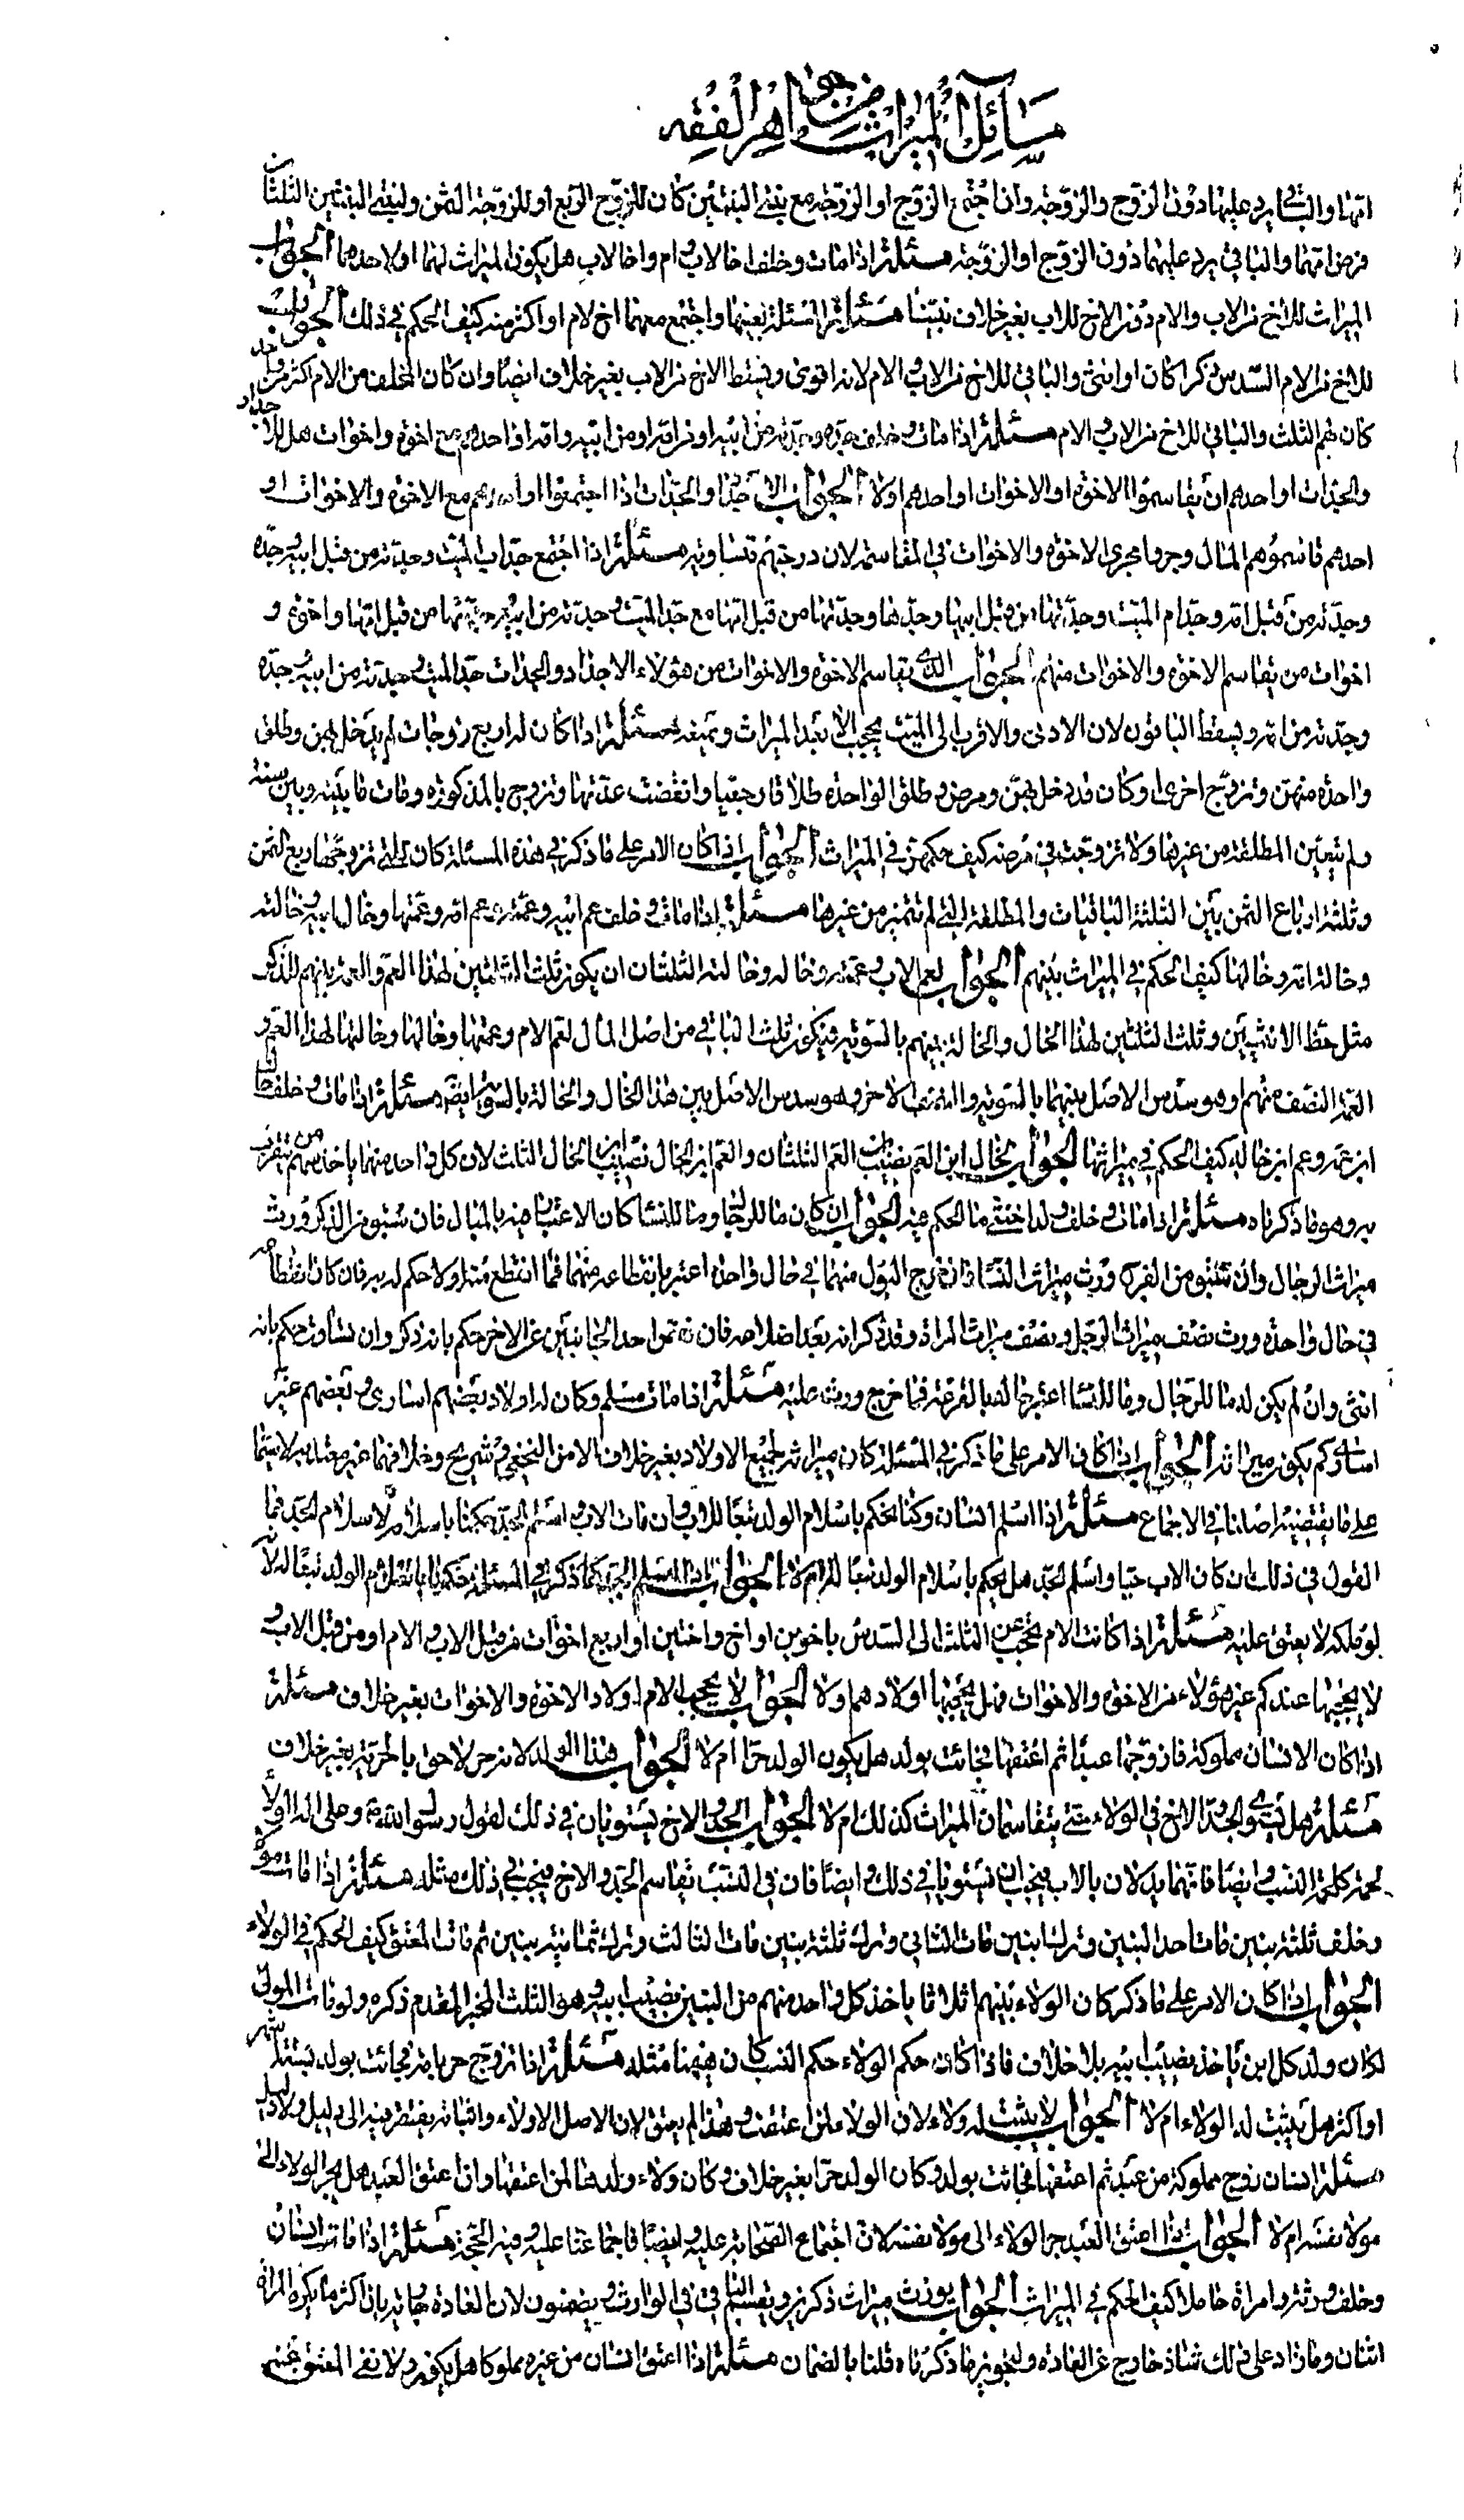 مسائل الميراث من جواهر الفقه
امّها والباقي يرد عليها دون الزوج والزوجة وان اجتمع الزوج او الزوجة مع بنتي البنتين كان للزوج الربع او للزوجة الثمن ولبنتي البنتين الثلثان
فرض امهما والباقي يرد عليهما دون الزوج او الزوجة مسئلة اذا مات وخلف اخا لاب وام واخا لاب هل يكون الميراث لهما او لاحدهما الجواب
الميراث للاخ من الاب والام دون الاخ للاب بغير خلاف بيننا مسئلة المسئلة بعينها واجتمع معهما اخ لام او اكثر منه كيف الحكم في ذلك الجواب
للاخ من الام السدس ذكرا كان او انثى والباقي للاخ من الاب والام لانه اقوى ويسقط الاخ من الاب بغير خلاف ايضا وان كان المخلف من الام اكثر من واحد
كان لهم الثلث والباقي للاخ من الاب والام مسئلة اذا مات وخلف جده وجدته من ابيه او من امه او من ابيه وامه او احدهم مع اخوة واخوات هل للاجداد
والجدات او احدهم ان يقاسموا الاخوة او الاخوات او احدهم او لا الجواب الاجداد والجدات اذا اجتمعوا او احدهم مع الاخوة والاخوات او
احدهم قاسموهم المال وجروا مجرى الاخوة والاخوات في المقاسمة لان درجتهم متساوية مسئلة اذا اجتمع جد اب الميت وجدته من قبل ابيه وجده
وجدته من قبل امه وجد ام الميت وجدتها من قبل ابيها وجدها وجدتها من قبل امها مع جد الميت وجدته من ابيه وجدتهما من قبل امها واخوة و
اخوات من يقاسم الاخوة والاخوات منهم الجواب الذى يقاسم الاخوة والاخوات من هؤلاء الاجداد والجدات جد الميت وجدته من ابيه وجده
وجدته من امه ويسقط الباقون لان الادنى والاقرب الى الميت يحجب الابعد الميراث ويمنعه مسئلة اذا كان له اربع زوجات لم يدخل بهن وطلق
واحدة منهن وتزوج اخرى او كان قد دخل بهن ومرض وطلق الواحدة طلاقا رجعيا وانقضت عدتها وتزوج بالمذكورة ومات ما بينه وبين سنة
ولم تتعين المطلقة من غيرها ولا تزوجت في مرضه كيف حكمهن في الميراث الجواب اذا كان الامر على ما ذكر في هذه المسئلة كان للتي تزوجها ربع الثمن
وثلثة ارباع الثمن بين الثلثة الباقيات والمطلقة التي لم تتميز من غيرها مسئلة اذا مات وخلف عم ابيه وعمته وعم امه وعمتها وخال ابيه وخالته
وخال امه وخالتها كيف الحكم في الميراث بينهم الجواب لعم الاب وعمته وخاله وخالته الثلثان ان يكون ثلث الثلثين لهذا العم والعمة بينهم للذكر
مثل حظ الانثيين وثلث الثلثين لهذا الخال والخالة بينهم بالسوية فيكون ثلث الباقي من اصل المال لعم الام وعمتها وخالها وخالتها لهذا العم و
العمة النصف منهم وهو سدس الاصل بينهما بالسوية والنصف الاخر وهو سدس الاصل بين هذا الخال والخالة بالسوية ايضا مسئلة اذا مات وخلف خال
ابن عمه وعم ابن خاله كيف الحكم في ميراثهما الجواب لخال ابن العم نصيب العم الثلثان والعم ابن الخال نصيب الخال الثلث لان كل واحد منهما ياخذ سهم من يتقرب
به وهو ما ذكرناه مسئلة اذا مات وخلف ولدا خنثى ما الحكم فيه الجواب ان كان ما للرجال وما للنساء كان الاعتبار فيه بالمبال فان سبق من الذكر ورث
ميراث الرجال وان سبق من الفرج ورث ميراث النساء فان خرج البول منهما في حال واحدة اعتبر بانقطاعه منهما فما انقطع منه اولا حكم له به فان كان انقطاعه
في حال واحدة ورث نصف ميراث الرجل ونصف ميراث المراة وقد ذكر انه يعد اضلاعه فان نقص احد الجانبين عن الاخر حكم بانه ذكر وان تساوت حكم بانه
انثى وان لم يكن له ما للرجال وما للنساء اعتبر حاله بالقرعة فما خرج ورث عليه مسئلة اذا مات مسلم وكان له اولاد بعضهم اسارى وبعضهم غير
اسارى كم يكون ميراثه الجواب اذا كان الامر على ما ذكر في المسئلة كان ميراثه لجميع الاولاد بغير خلاف الا من النخعي وشريح وخلافهما غير معتد به لا سيما
على ما يقتضيه اصلنا في الاجماع مسئلة اذا اسلم انسان وكنا نحكم باسلام الولد تبعا للاب وان مات الاب واسلم الجد حكمنا باسلامه لاسلام الجد فما
القول في ذلك ان كان الاب حيا واسلم الجد هل يحكم باسلام الولد تبعا له ام لا الجواب اذا اسلم الجد كما ذكر في المسئلة حكم باسلام الولد تبعا له لانه
لو ملكه لا يعتق عليه مسئلة اذا كانت الام تحجب عن الثلث الى السدس باخوين او اخ واختين او اربع اخوات من قبل الاب والام او من قبل الاب و
لا يحجبها عندكم غير هؤلاء من الاخوة والاخوات فهل يحجبها اولادهما ولا الجواب لا يحجب الام اولاد الاخوة والاخوات بغير خلاف مسئلة
اذا كان لانسان مملوكة فازوجها عبدا ثم اعتقها فجائت بولد هل يكون الولد حرا ام لا الجواب هذا الولد لا مرحى لاحق بالحرية بغير خلاف
مسئلة هل يستوي الجد والاخ في الولاء حتى يتقاسمان الميراث كذلك ام لا الجواب الجد والاخ يستويان في ذلك لقول رسول الله ص وعلى اله الولاء
لحمة كلحمة النسب وايضا فانهما يدلان بالاب فيجب ان يستويا في ذلك وايضا فان في النسب تقاسم الجد والاخ فيجب في ذلك مثله مسئلة اذا مات مولى
وخلف ثلثة بنين فمات احد البنين وترك ابنين مات الثاني وترك ثلثة بنين مات الثالث وترك ثمانية بنين ثم مات المعتق كيف الحكم في الولاء
الجواب اذا كان الامر على ما ذكر كان الولاء بينهم اثلاثا ياخذ كل واحد منهم من البنين نصيب ابيه وهو الثلث للخبر المقدم ذكره ولو مات المولى
لكان ولد كل ابن ياخذ نصيب ابيه بلا خلاف فاذا كان حكم الولاء حكم النسب كان هيهنا مثله مسئلة اذا تزوج حر بامة فجائت بولد لستة اشهر
او اكثر هل يثبت له الولاء ام لا الجواب لا يثبت له ولاء لان الولاء لمن اعتقت وهذا لم يعتق لان الاصل الا ولاء واثباته يفتقر فيه الى دليل ولا دليل
مسئلة انسان زوج مملوكة من عبد ثم اعتقها فجائت بولد كان الولد حرا بغير خلاف وكان ولاء ولدها لمن اعتقها وان اعتق العبد هل يجر الولاء الى
مولا نفسه ام لا الجواب اذا اعتق العبد جر الولاء الى مولا نفسه لان اجماع الصحابة عليه وايضا فاجماعنا عليه وفيه الحجة مسئلة اذا مات انسان
وخلف ورثة وامراة حاملا كيف الحكم في الميراث الجواب يورث ميراث ذكرين ويقسم الباقي في الوارث ويضمنون لان العادة جارية بان اكثر ما يكره المراة
اثنان وما زاد على ذلك شاذ خارج عن العادة ولتجويز ما ذكرناه قلنا بالضمان مسئلة اذا اعتق انسان من غيره مملوكا هل يكون ولائه للمعتق عنه